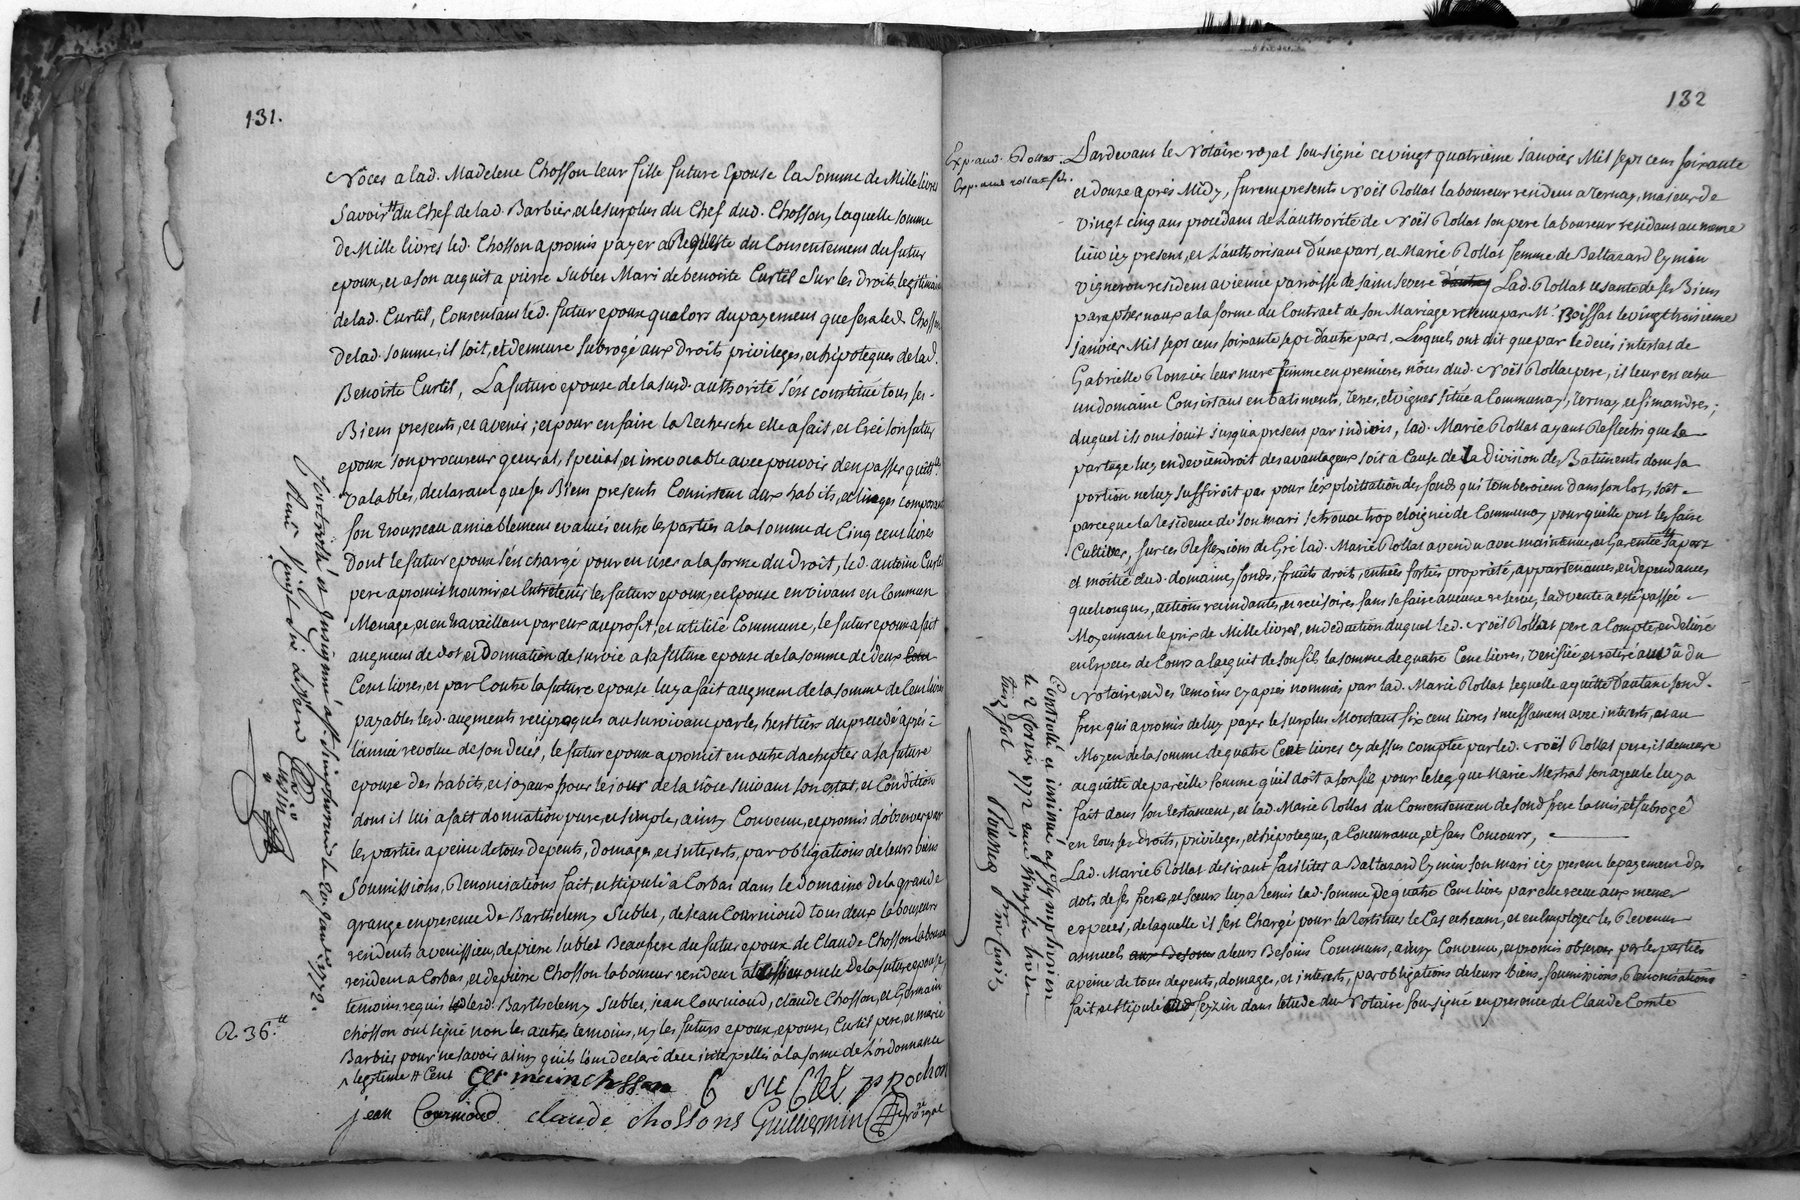 131.
Noces a lad. Madelene Chosson leur fille future Epouse la Somme de Mille livres
Savoir du Chef de lad. Barbier, et le surplus du Chef dud. Chosson, laquelle somme
de Mille livres led. Chosson a promis payer a Requeste du Consentement du futur
epoux, et a son acquit a pierre Sublet Mari de benoiste Curtil Sur les Droits legitimaires
de lad. Curtil, Consentant led. futur epoux qu'alors du payement que fera led. Chosson
de lad. somme, il soit, et demeure Subrogé aux Droits privileges, et hipoteques de lad.
Benoiste Curtil, La future epouse de la susd. authorité s'est constitué tous ses
Biens presents, et avenir; et pour en faire la Recherche elle a fait, et Créé son futur
epoux son procureur general, special, et irrevocable avec pouvoir d'en passer quitt.ce
Valables, declarant que ses Biens presents Consistent aux habits, et linges composant
son trousseau amiablement evalués entre les parties a la somme de Cinq cent livres
Dont le futur epoux s'est chargé pour en user a la forme du Droit, led. antoine Curtil
pere a promis nourrir, et Entretenir les futurs epoux, et epouse en vivant en Commun
Menage, et en travaillant par eux au profit, et utilité Commune, le futur epoux a fait
augment de dot et Donnation de survie a sa future epouse de la somme de deux
Cent livres, et par Contre la future epouse luy a fait augment de la somme de Cent livres
payables lesd. augments reciproques au survivant par les heritiers du precedé après
l'année revolue de son decés, le futur epoux a promit en outre d'achepter a sa future
epouse des habits, et joyaux pour le jour de la nôce suivant son estat, et Condition
dont il lui a fait donnation pure, et simple, ainsy Convenu, et promis d'observer par
les parties a peine de tous depents, domages, et interests, par obligations de leurs biens
Soumissions, Renonciations fait, et stipulé a Corbas dans le domaine de la grande
grange en presence de Barthelemy Sublet, de Jean Cournioud tous deux laboureurs
residents a venissieu, de pierre Sublet Beaufrere du futur epoux de Claude Chosson laboureur
resident a Corbas, et de pierre Chosson laboureur resident a oncle de la future epouse,
temoins requis lesd. Barthelemy Sublet, jean Cournioud, claude Chosson, et Germain
chosson ont signé non les autres temoins, ny les futurs epoux, epouse, Curtil pere, et marie
Barbier pour ne savoir ainsy qu'ils l'ont declaré de ce interpellés a la forme de l'ordonnance
legitime # Cent germain chosson SUCleT Rochas
jean Cournioud claude chossons Guilliermin
R. 36.tt
132
Exp. aud. Rollat.
Exp. aud rollat fils.
Pardevant le Notaire royal soussigné ce vingt quatrieme janvier Mil sept cent soixante
et douze aprés Midy, furent presents Noël Rollat laboureur resident a ternay, majeur de
vingt cinq ans procedant de l'authorité de Noël Rollat son pere laboureur residant au meme
lieu icy present, et l'authorisant d'une part, et Marie Rollat femme de Baltazard Eymin
vigneron resident a vienne parroisse de saint severe Lad. Rollat usante de ses Biens
paraphernaux a la forme du Contract de son Mariage retenu par M.e Boissat le vingt troisieme
janvier Mil sept cent soixante sept d'autre part, Lesquels ont dit que par le decés intestat de
Gabrielle Ronzier leur mere femme en premieres nôces dud. Noël Rollat pere, il leur est echu
un domaine Consistant en batiments, terres, et vignes situé a Communay, ternay, et simandres;
duquel ils ont jouit jusqu'a present par indivis, lad. Marie Rollat ayant Reflechi que le
partage luy en deviendroit desavantageux soit a Cause de la Division des Batiments dont sa
portion ne luy suffiroit pas pour l'exploitation des fonds qui tomberoient dans son lot, soit
parceque la residence de son mari se trouve trop eloignée de Communay pour qu'elle put les faire
Cultiver, sur ces Reflexions de Gré lad. Marie Rollat a vendu avec maintenue, et Garentie sa part
et moitié dud. domaine, fonds, fruits droits, entrées sorties proprieté, appartenances, et dependances
quelconques, actions rescindantes, et rescisoires sans se faire aucune reserve, lad vente a esté passée
Moyennant le prix de Mille livres, en deduction duquel led. Noël Rollat pere a Compté, et delivré
en Especes de Cours a l'acquit de son fils la somme de quatre Cent livres, verifiée et retiré au vû du
Notaire, et des temoins cy après nommés par lad. Marie Rollat laquelle a quitté d'autant sond.
frere qui a promis de luy payer le surplus Montant six cent livres incessament avec interests, et au
Moyen de la somme de quatre Cent livres cy dessus comptée par led. Noël Rollat pere, il demeure
acquitté de pareille somme qu'il doit a son fils pour le legs que Marie Mestral son ayeule luy a
fait dans son testament, et lad. Marie Rollat du Consentement de sond frere l'a mis, et subrogé
en tous ses droits, privileges, et hipoteques, a Concurrance, et sans Concours,
Lad. Marie Rollat desirant faciliter a Baltazard Eymin son mari icy present le payement des
dots de ses freres, et soeurs luy a remis lad. somme de quatre Cent livres par elle receue aux memes
especes, de laquelle il s'est Chargé pour la Restituer le Cas echeant, et en Employer les Revenus
annuels a leurs Besoins Communs, ainsy Convenu, et promis observer par les parties
a peine de tous depents, domages, et interests, par obligations de leurs biens, soumissions, Renonciations
fait, et stipulé a feyzin dans l'etude du Notaire soussigné en presence de Claude Comte
Controlé et insinué a s.t symphorien
le 2 fevrier 1772